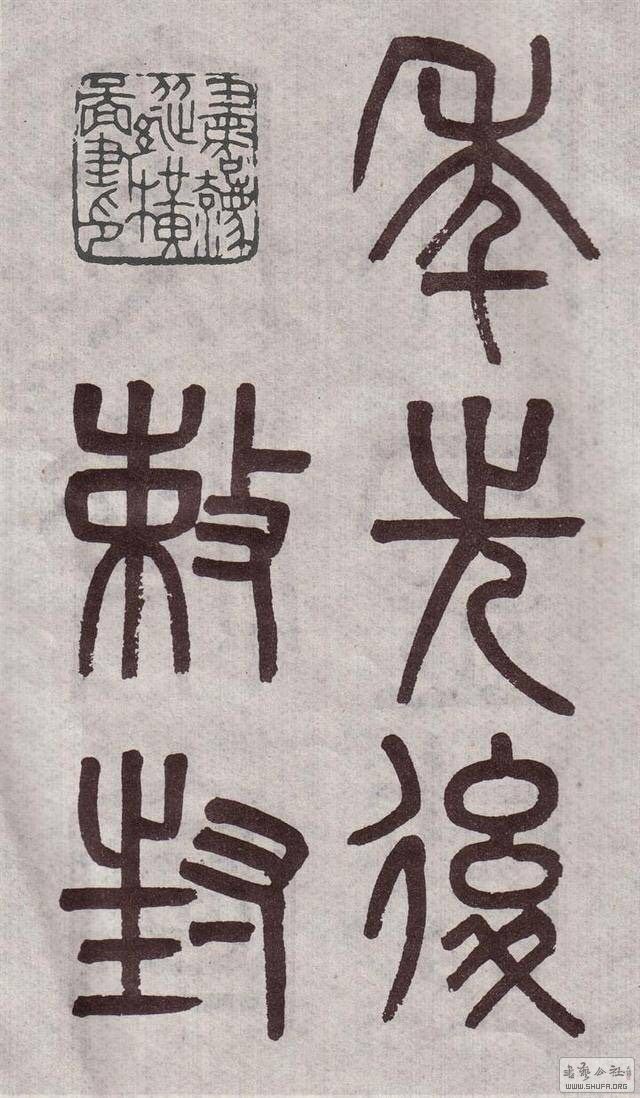 年先後
敕封
书艺公社
WWW.SHUFA.ORG